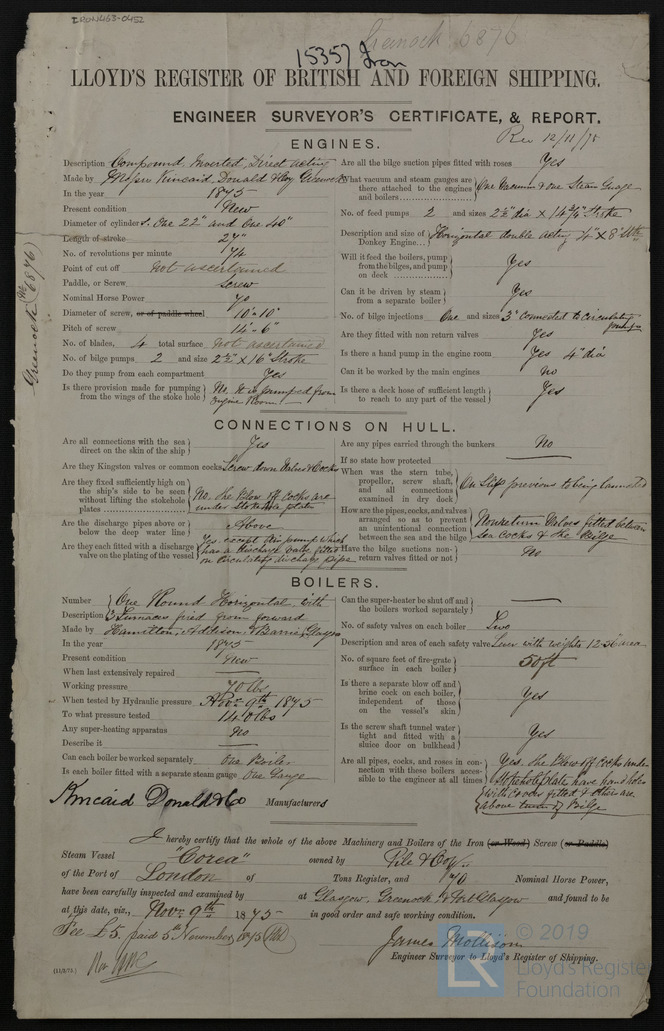 IRON463-0452
Greenock 6876
15357 Iron
LLOYD'S REGISTER OF BRITISH AND FOREIGN SHIPPING.
ENGINEER SURVEYOR'S CERTIFICATE, & REPORT.
Rec 12/11/75
ENGINES.
Description Compound, Inverted, Direct Acting
Made by Messrs Kincaid, Donald & Coy Greenock
In the year 1875
Present condition New
Diameter of cylinders. One 22" and One 40"
Length of stroke 27"
No. of revolutions per minute 74
Point of cut off Not ascertained
Paddle, or Screw Screw
Nominal Horse Power 70
Diameter of screw, or of paddle wheel 10'-10"
Pitch of screw 14'-6"
No. of blades, 4 total surface Not ascertained
No. of bilge pumps 2 and size 2½" x 16" Stroke
Do they pump from each compartment Yes
Is there provision made for pumping from the wings of the stoke hole No. It is pumped from Engine Room
Are all the bilge suction pipes fitted with roses Yes
What vacuum and steam gauges are there attached to the engines and boilers One Vacuum & one Steam Guage
No. of feed pumps 2 and sizes 2½" dia x 14¾" Stroke
Description and size of Donkey Engine Horizontal double acting 4" x 8" Stke
Will it feed the boilers, pump from the bilges, and pump on deck Yes
Can it be driven by steam from a separate boiler Yes
No. of bilge injections One and sizes 3" connected to circulating pump
Are they fitted with non return valves Yes
Is there a hand pump in the engine room Yes 4" dia
Can it be worked by the main engines No
Is there a deck hose of sufficient length to reach to any part of the vessel Yes
Greenock No (6876)
CONNECTIONS ON HULL.
Are all connections with the sea direct on the skin of the ship Yes
Are they Kingston valves or common cocks Screw down Valves & Cocks
Are they fixed sufficiently high on the ship's side to be seen without lifting the stokehole plates No. The Blow off Cocks are under Stokehole plates
Are the discharge pipes above or below the deep water line Above
Are they each fitted with a discharge valve on the plating of the vessel Yes, except this pump which has a discharge Valve fitted on Circulating discharge pipe
Are any pipes carried through the bunkers No
If so state how protected
When was the stern tube, propeller, screw shaft, and all connections examined in dry dock On Slip previous to being launched
How are the pipes, cocks, and valves arranged so as to prevent an unintentional connection between the sea and the bilge Nonreturn Valves fitted between sea cocks & the Bilge
Have the bilge suctions non-return valves fitted or not No
BOILERS.
Number Description One Round Horizontal with 3 furnaces fired from forward
Made by Hamilton, Addison, & Barrie, Glasgow
In the year 1875
Present condition New
When last extensively repaired
Working pressure 70 lbs
When tested by Hydraulic pressure Nov. 9th 1875
To what pressure tested 140 lbs
Any super-heating apparatus No
Describe it
Can each boiler be worked separately One Boiler
Is each boiler fitted with a separate steam gauge One Gauge
Can the super-heater be shut off and the boilers worked separately
No. of safety valves on each boiler Two
Description and area of each safety valve Lever with weights 12.56" area
No. of square feet of fire-grate surface in each boiler 50 ft
Is there a separate blow off and brine cock on each boiler, independent of those on the vessel's skin Yes
Is the screw shaft tunnel water tight and fitted with a sluice door on bulkhead Yes
Are all pipes, cocks, and roses in connection with these boilers accessible to the engineer at all times Yes. The Blow off Cocks under Stokehole plate have hand holes with covers fitted & others are above turn of Bilge
Kincaid Donald & Co Manufacturers
I hereby certify that the whole of the above Machinery and Boilers of the Iron (or Wood) Screw (or Paddle)
Steam Vessel "Corea" owned by Pile & Coy.
of the Port of London of Tons Register, and 70 Nominal Horse Power,
have been carefully inspected and examined by at Glasgow, Greenock, & Port Glasgow and found to be
at this date, viz., Nov. 9th 1875 in good order and safe working condition.
Fee £5. paid 5th November, 1875
James Mollison
Engineer Surveyor to Lloyd's Register of Shipping.
(11/2/75)
LR © 2019
Lloyd's Register
Foundation